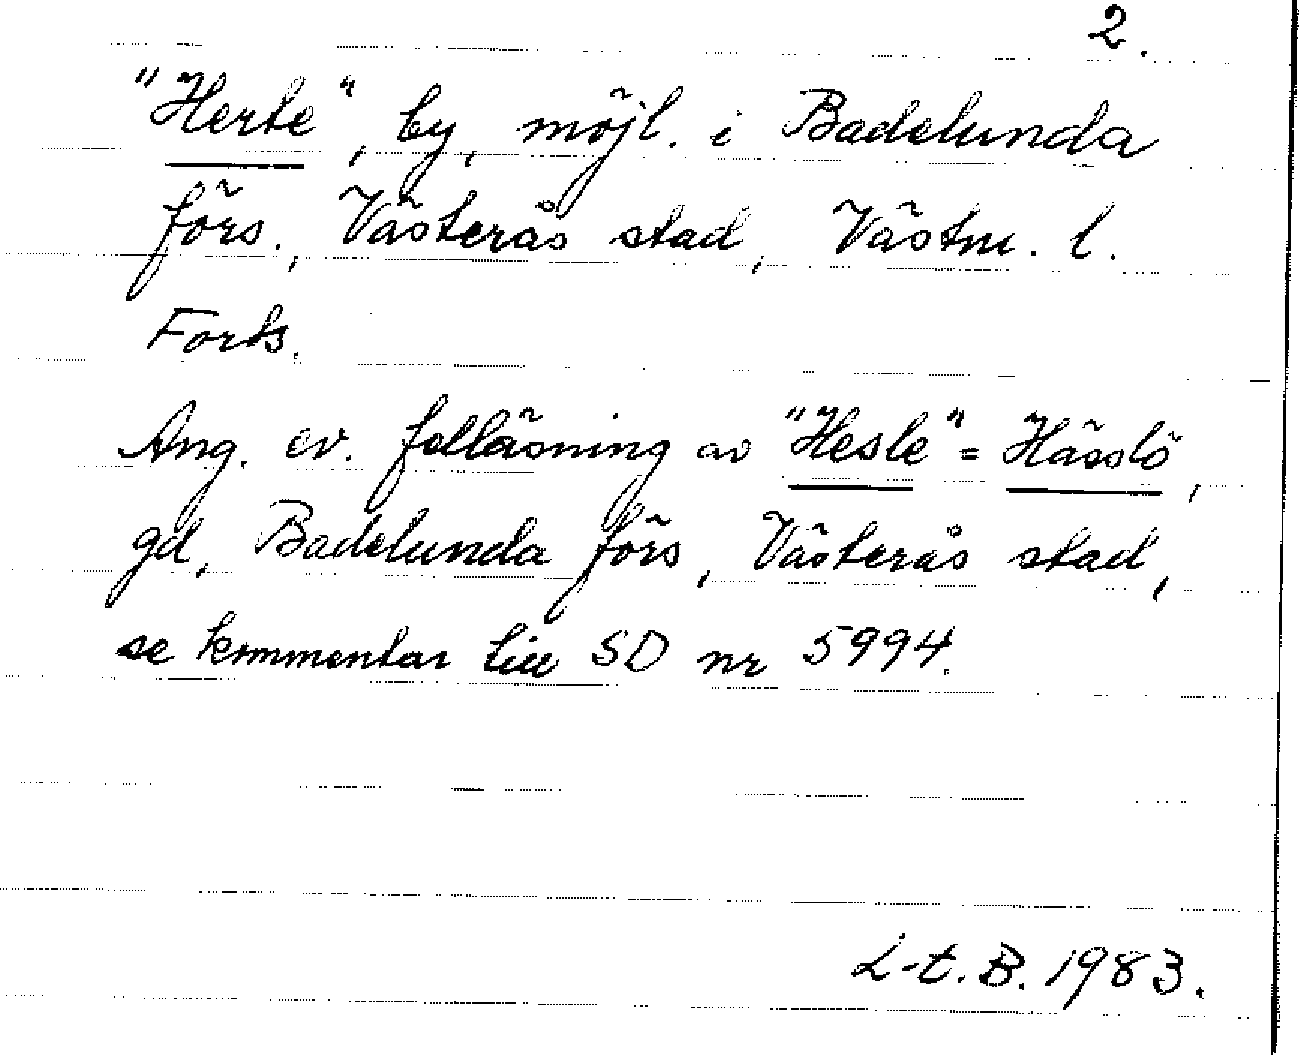 2.
"Herle", by, möjl. i Badelunda
förs., Västerås stad, Västm. l.
Forts.
Ang. ev. felläsning av "Hesle" = Hässlö,
gd, Badelunda förs, Västerås stad,
se kommentar till SD nr 5994.
L-t. B. 1983.